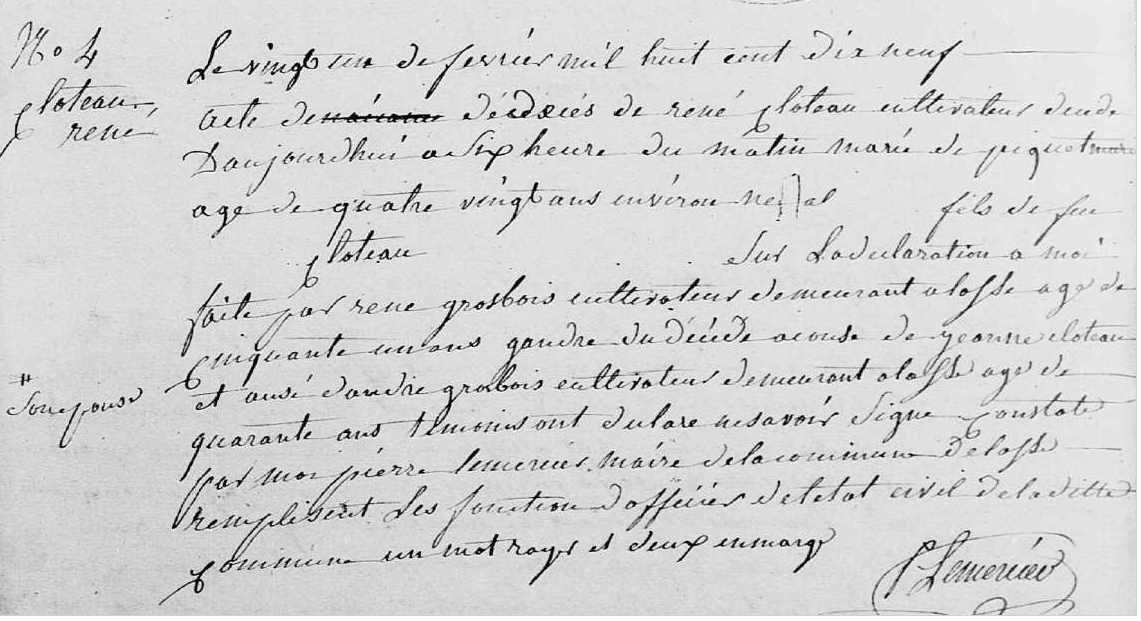 No 4
Cloteau
rené
Le vingt un de fevrier mil huit cent dix neuf
acte de naissance décdeciés de rené Cloteau cultivateur décédé
Daujourdhui a Six heure du matin marié de piquet marie
age de quatre vingt ans environ né al fils de feu
Cloteau Sur La declaration a moi
faite par rene grosbois cultivateur demeurant a losse age de
Cinquante un ans gandre du décédé acause de jeanne cloteau
#
Son epouse
et ausé dandre grosbois cultivateur demeurant a losse age de
quarante ans temoins ont declare ne savoir Signe Constaté
par moi pierre lemercier maire de la commune De losse
remplisent Les fonction d'officier de letat civil de la ditte
Commune un mot rayer et deux en marge
P Lemercier